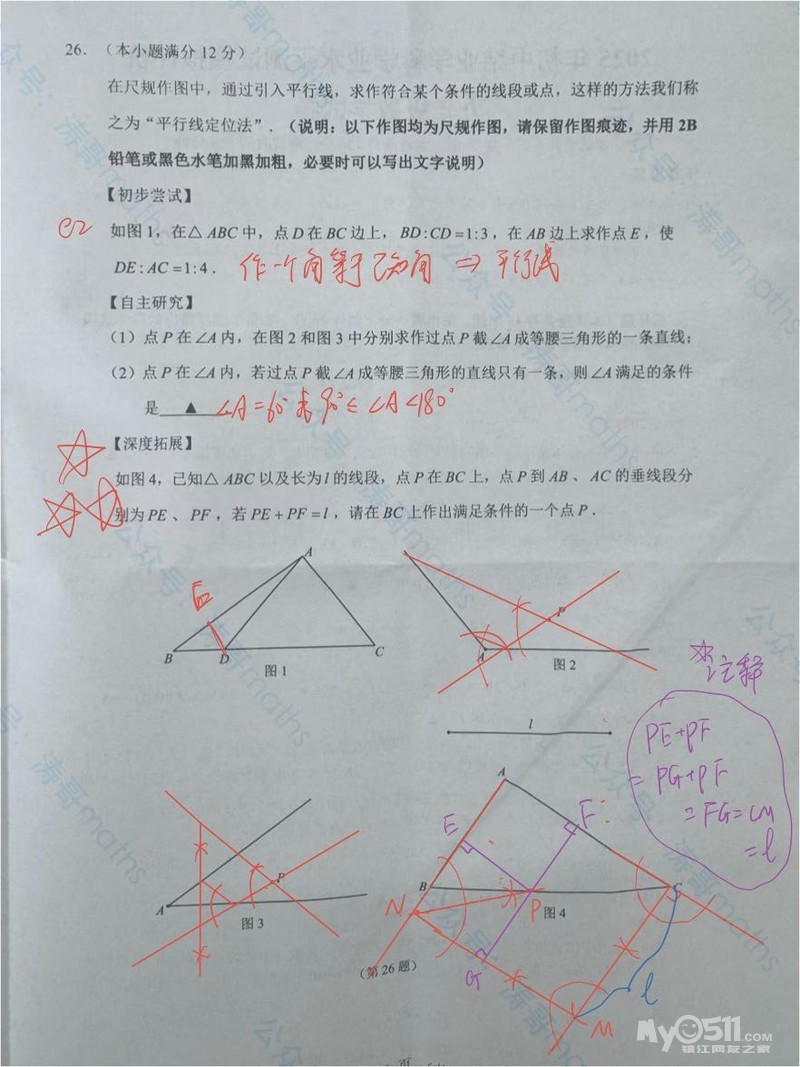 26. （本小题满分 12 分）
在尺规作图中，通过引入平行线，求作符合某个条件的线段或点，这样的方法我们称
之为“平行线定位法”．（说明：以下作图均为尺规作图，请保留作图痕迹，并用 2B
铅笔或黑色水笔加黑加粗，必要时可以写出文字说明）
【初步尝试】
如图 1，在△ ABC 中，点 D 在 BC 边上，BD:CD=1:3，在 AB 边上求作点 E，使
DE:AC=1:4． 作一个角等于已知角 ⇒ 平行线
【自主研究】
（1）点 P 在∠A 内，在图 2 和图 3 中分别求作过点 P 截∠A 成等腰三角形的一条直线；
（2）点 P 在∠A 内，若过点 P 截∠A 成等腰三角形的直线只有一条，则∠A 满足的条件
是 ▲ ∠A=60° 或 90°≤∠A<180°
【深度拓展】
如图 4，已知△ ABC 以及长为 l 的线段，点 P 在 BC 上，点 P 到 AB 、 AC 的垂线段分
别为 PE 、 PF ，若 PE+PF=l ，请在 BC 上作出满足条件的一个点 P．
A
B D C
图 1
P
A
图 2
注释
l
PE+PF
=PG+PF
=FG=CM
=l
A
E F
B C
N P
图 4
G
l
M
P
A
图 3
（第 26 题）
My0511.COM
镇江网友之家
公众号：涛哥maths